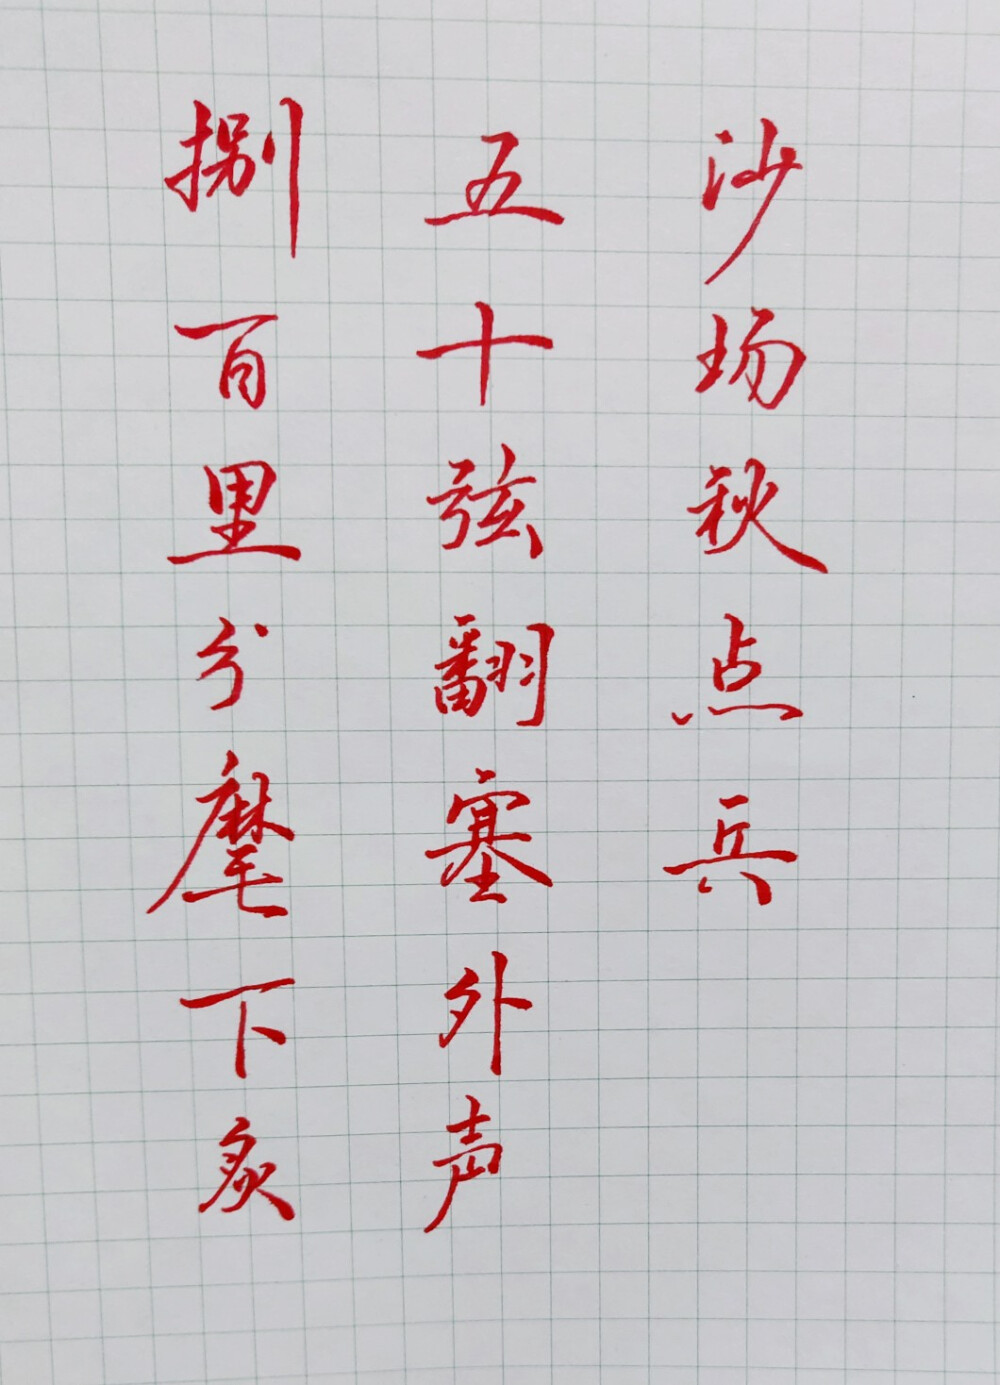 捌百里分麾下炙
五十弦翻塞外声
沙场秋点兵